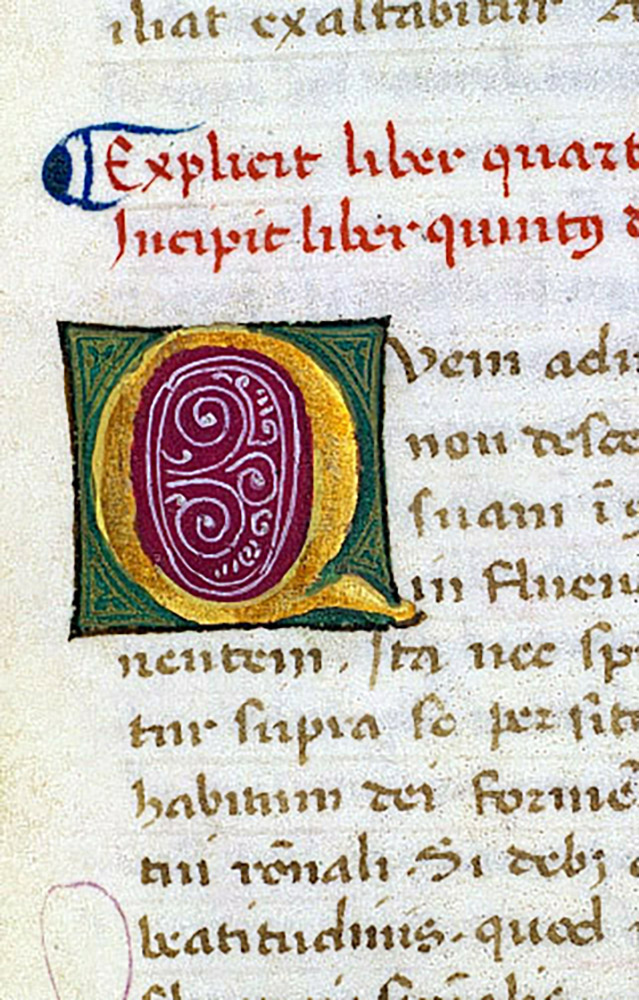 iliat exaltabitur A
Explicit liber quart
Incipit liber quintꝯ d
Quem adm
non desce
suam ī s
in fluen
nentem. Ita nec sp
tur supra se per
habitum dei forme
tui rōnali. Si debꝫ
beatitudinis. quod